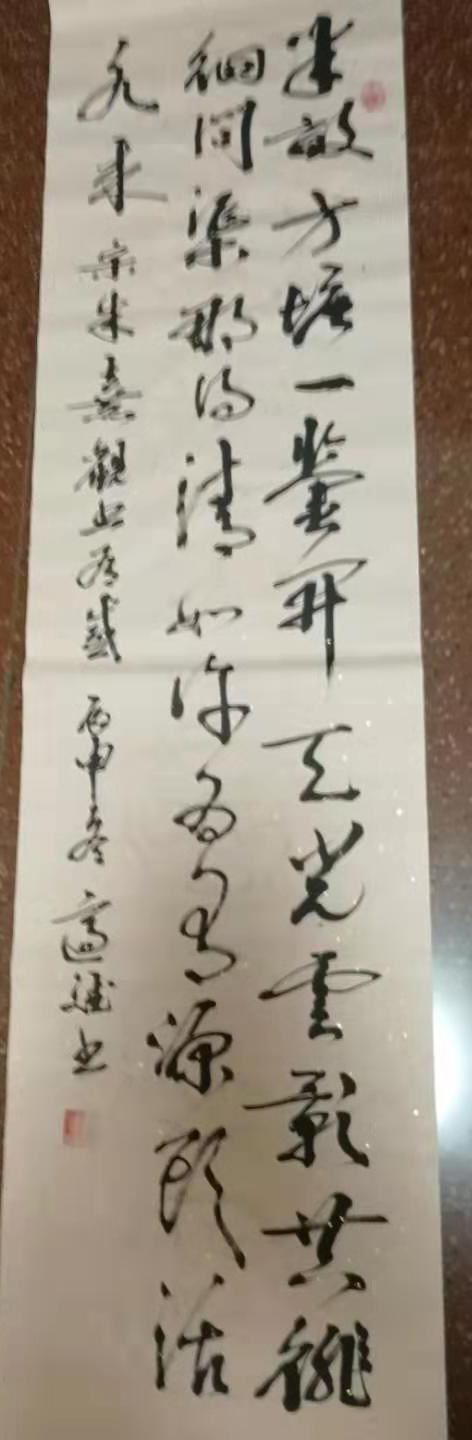 半畝方塘一鑒開天光雲影共徘
徊問渠那得清如許為有源頭活
水来 宋朱熹觀书有感 丙申冬 书